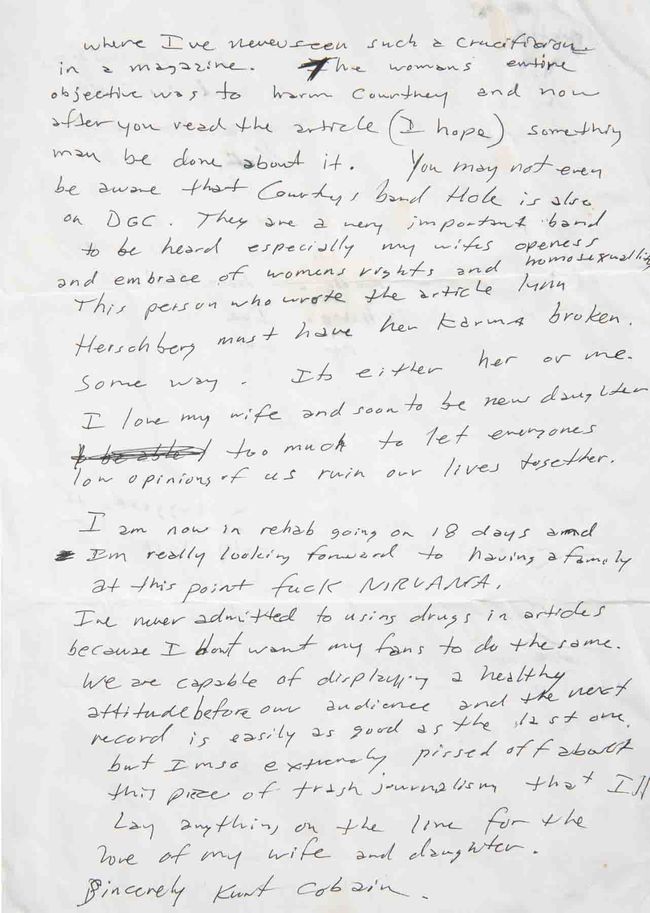 where I've never seen such a crucifixion
in a magazine. The womans entire
objective was to harm Courtney and now
after you read the article (I hope) something
man be done about it. You may not even
be aware that Courtys band Hole is also
on DGC. They are a very important band
to be heard especially my wifes openess
and embrace of womens rights and homosexuality
This person who wrote the article lynn
Herschberg must have her Karma broken.
Some way. Its either her or me.
I love my wife and soon to be new daughter
too much to let everyones
low opinions of us ruin our lives together.
I am now in rehab going on 18 days and
Im really looking forward to having a family
at this point fuck NIRVANA.
I've never admitted to using drugs in articles
because I dont want my fans to do the same.
We are capable of displaying a healthy
attitude before our audience and the next
record is easily as good as the last one.
but Im so extremely pissed off about
this piece of trash journalism that Ill
Lay anything on the line for the
love of my wife and daughter.
Sincerely Kurt Cobain.